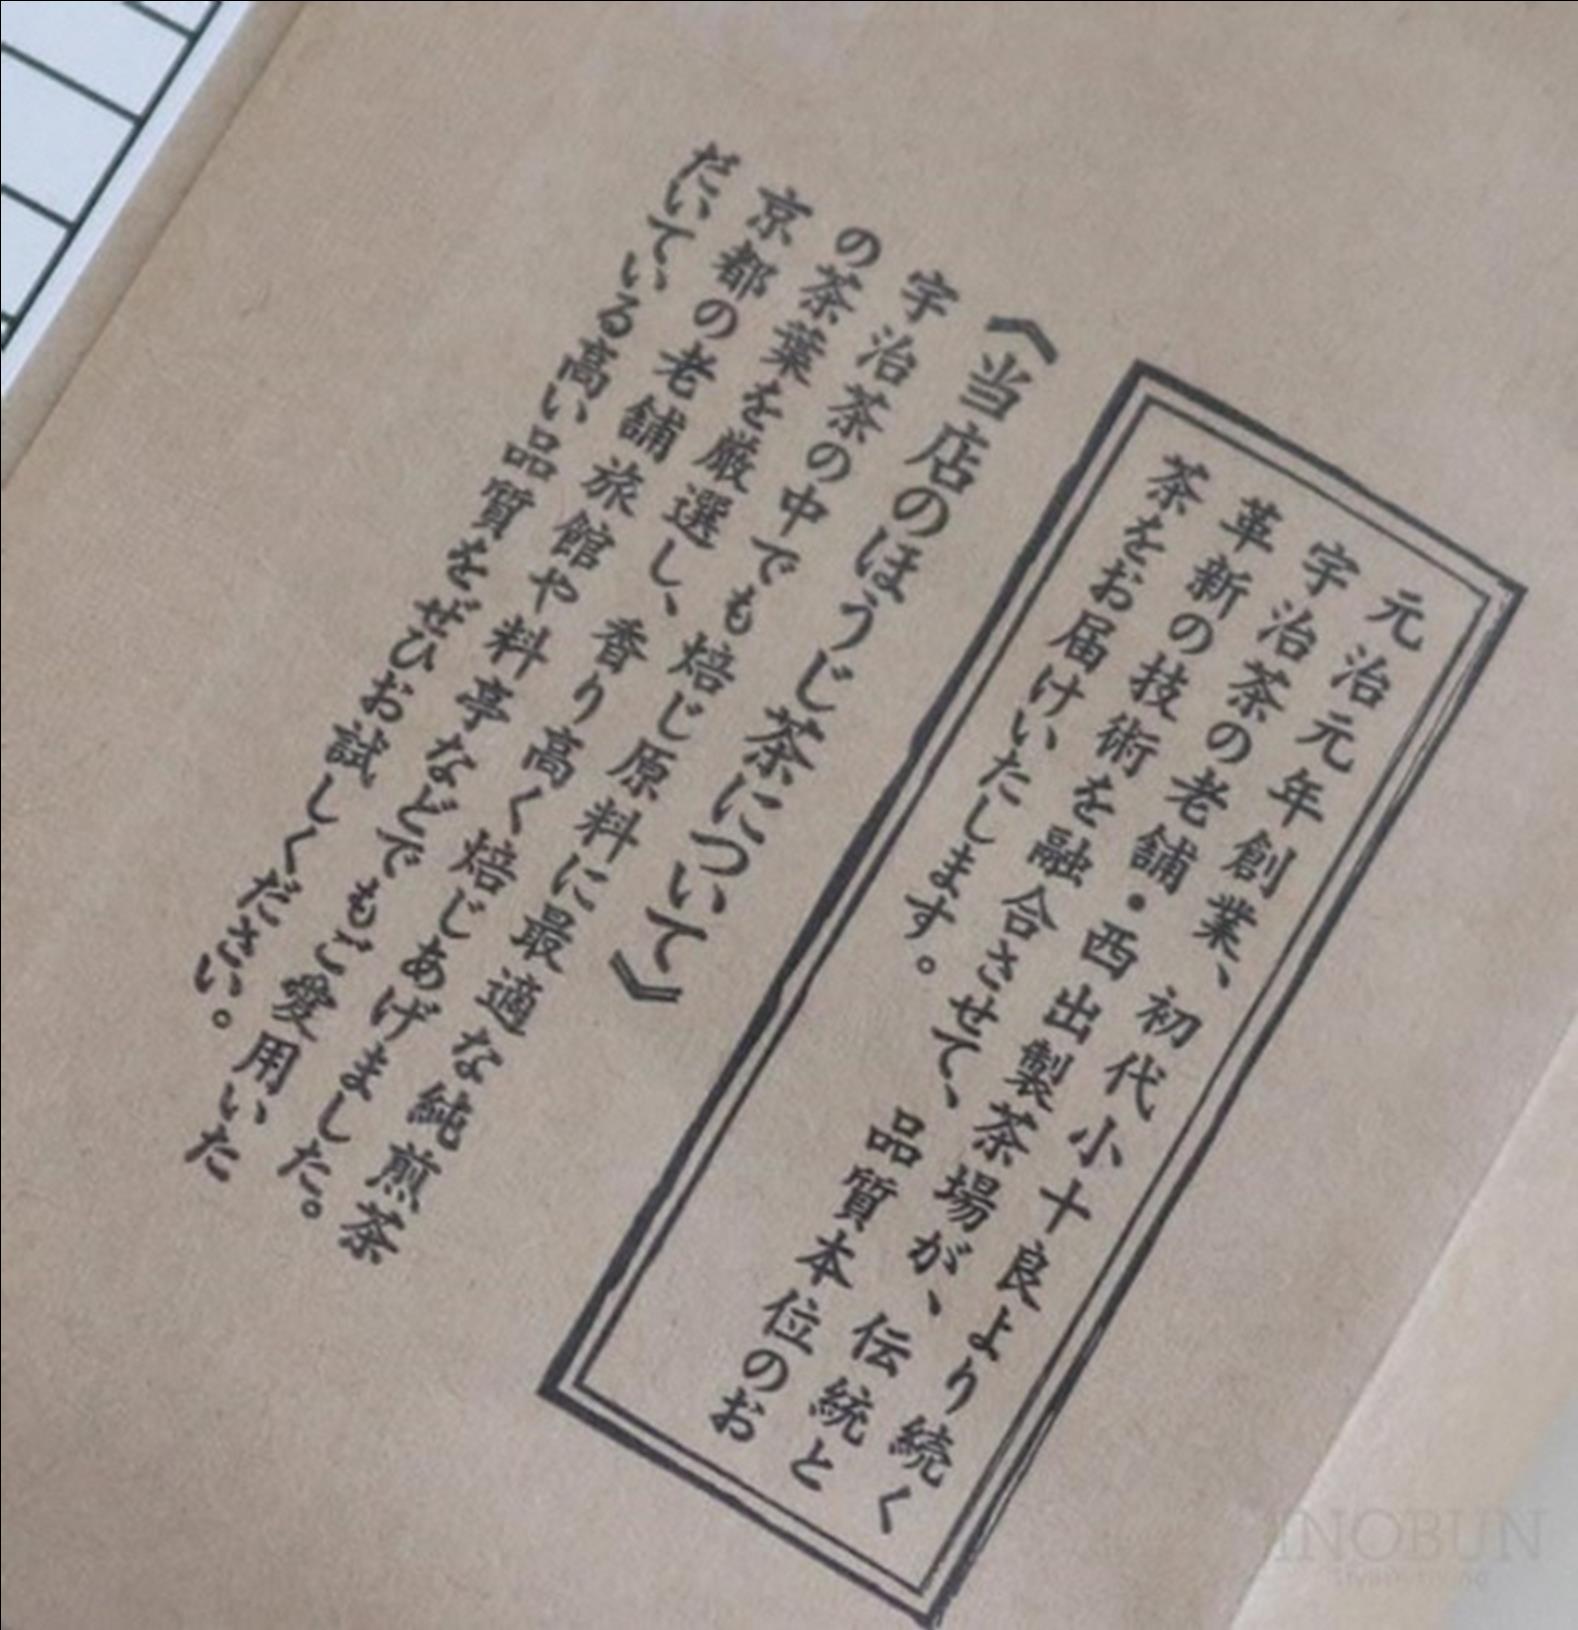 元治元年創業、初代小十良より続く
宇治茶の老舗・西出製茶場が、伝統と
革新の技術を融合させて、品質本位のお
茶をお届けいたします。
《当店のほうじ茶について》
宇治茶の中でも焙じ原料に最適な純煎茶
の茶葉を厳選し、香り高く焙じあげました。
京都の老舗旅館や料亭などでもご愛用いた
だいている高い品質をぜひお試しください。
INOBUN